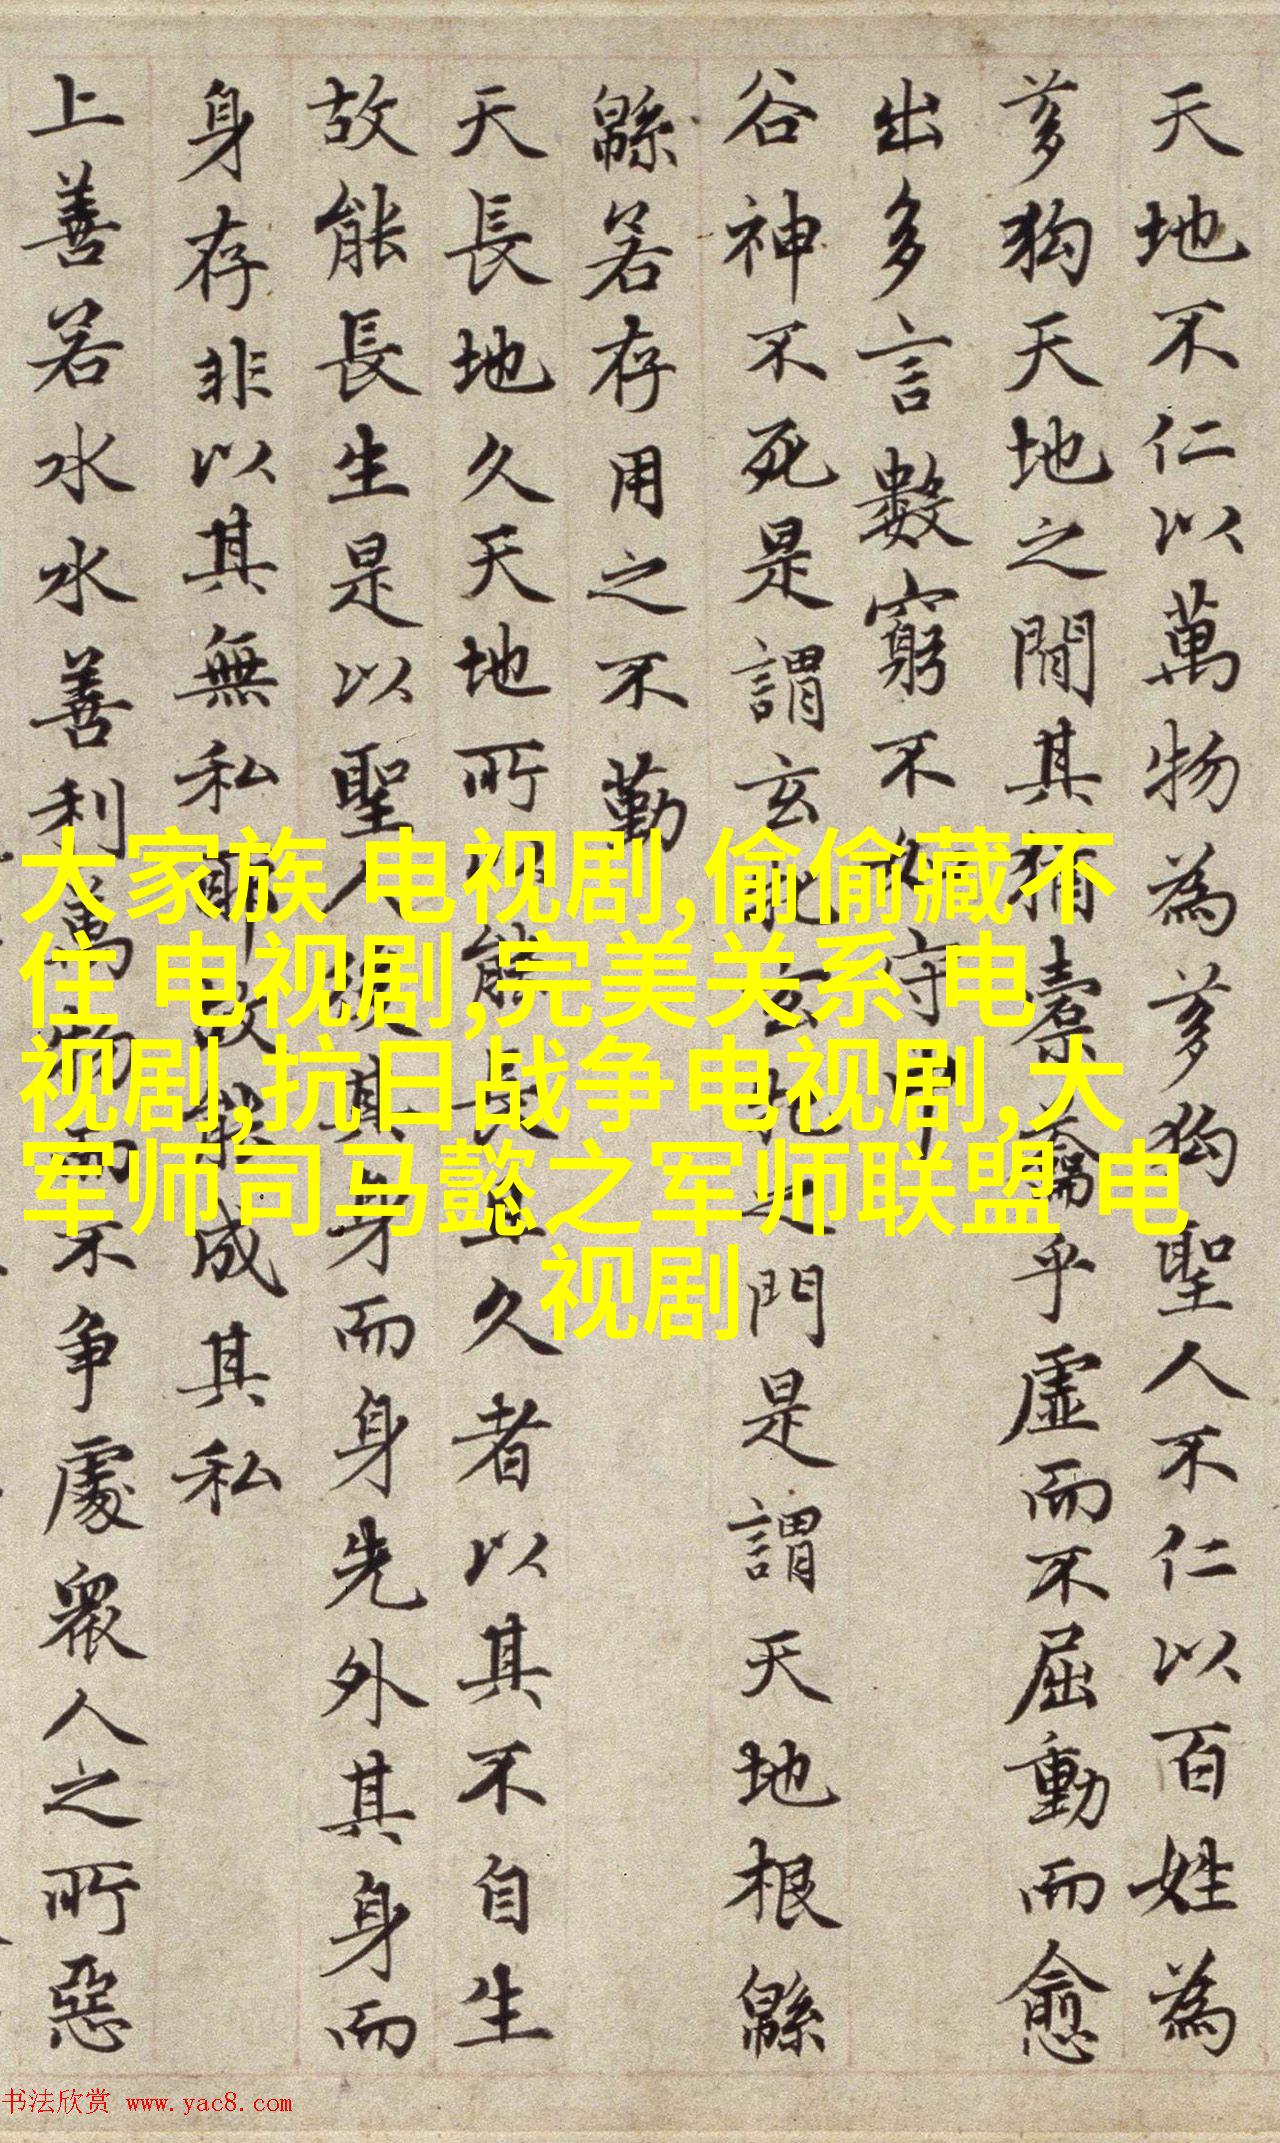 天地不仁以萬物為芻狗聖人不仁以百姓為
芻狗天地之間其猶橐籥乎虛而不屈動而愈
出多言數窮不如守中
谷神不死是謂玄牝玄牝之門是謂天地根緜
緜若存用之不勤
天長地久天地所以能長且久者以其不自生
故能長生是以聖人後其身而身先外其身而
身存非以其無私耶故能成其私
上善若水水善利萬物而不爭處衆人之所惡
大家族 电视剧,偷偷藏不
住 电视剧,完美关系 电
视剧,抗日战争电视剧,大
军师司马懿之军师联盟 电
视剧
书法欣赏 www.yac8.com